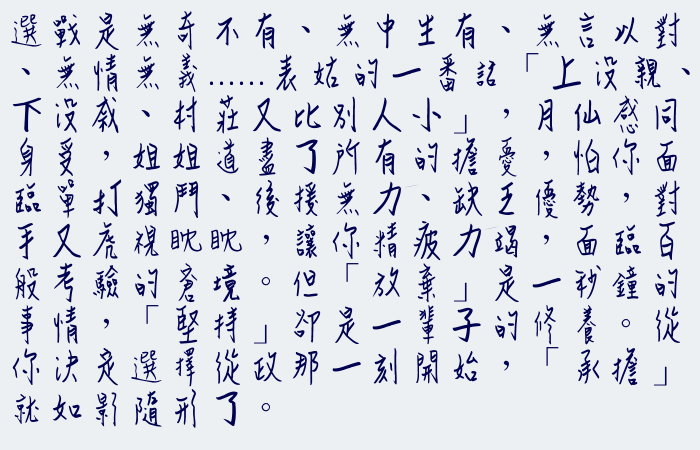 選戰是無奇不有、無中生有、無言以對
、無情無義……表姑的一番話「上沒親、
下沒戚、村莊又比別人小」，月仙感同
身受，姐姐道盡了所有的擔憂，怕你面
臨單打獨鬥、後援無力、缺乏優勢，對
手又虎視眈眈，讓你精疲力竭，面臨百
般考驗的窘境。但「放棄」是一秒鐘的
事情，「堅持」卻是一輩子的修養。從
你決定選擇從政那一刻開始，「承擔」
就如影隨形了。